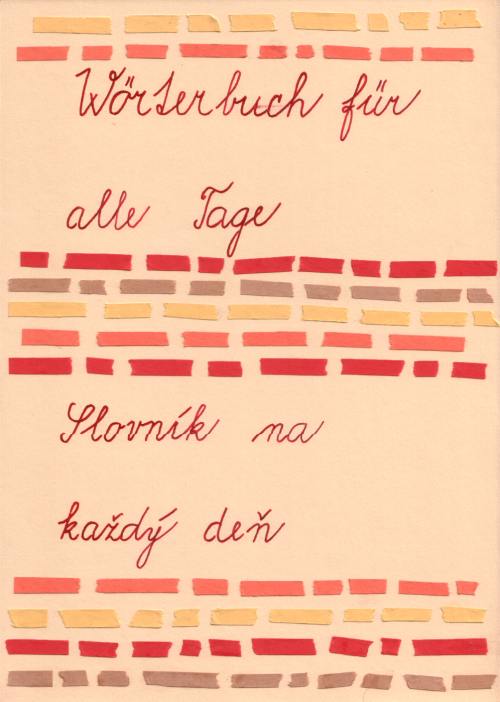 Wörterbuch für
alle Tage
Slovník na
každý deň